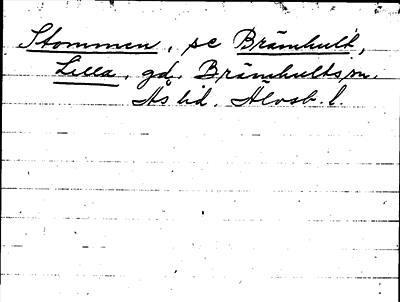 Stommen, se Brämhult,
Lilla, gd, Brämhults sn.
Ås hd. Älvsb. l.